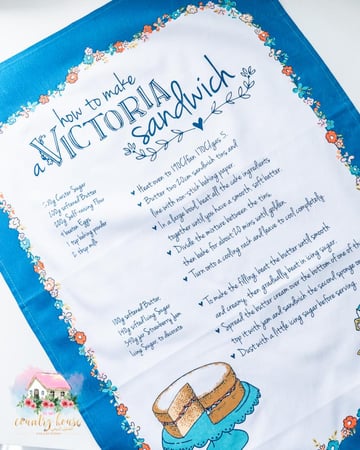 how to make
a VICTORIA
sandwich
200g Caster Sugar
200g softened Butter
200g Self-raising Flour
4 beaten Eggs
1 tsp baking powder
2 tbsp milk
Heat oven to 190C/fan 170C/gas 5.
Butter two 20cm sandwich tins and
line with non-stick baking paper.
In a large bowl beat all the cake ingredients
together until you have a smooth, soft batter.
Divide the mixture between the tins
then bake for about 20 mins until golden.
Turn onto a cooling rack and leave to cool completely.
100g softened Butter
140g sifted Icing Sugar
340g jar Strawberry Jam
Icing Sugar to decorate
To make the filling, beat the butter until smooth
and creamy, then gradually beat in icing sugar.
Spread the butter cream over the bottom of one of the
top it with jam and sandwich the second sponge
Dust with a little icing sugar before serving.
country house